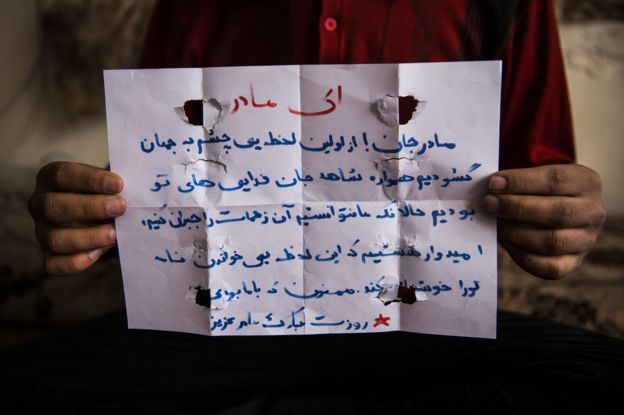 ای مادر
مادر جان! از اولین لحظه یی چشم به جهان
گشودیم همواره شاهد جان فدایی های تو
بودیم حالا که ما نتوانستیم آن زحمات را جبران کنیم
امیدوار هستیم که این لحظه یی خواندن نامه
تورا خوشحال کند. ممنون که با ما بودی
روزت مبارک مادر عزیز